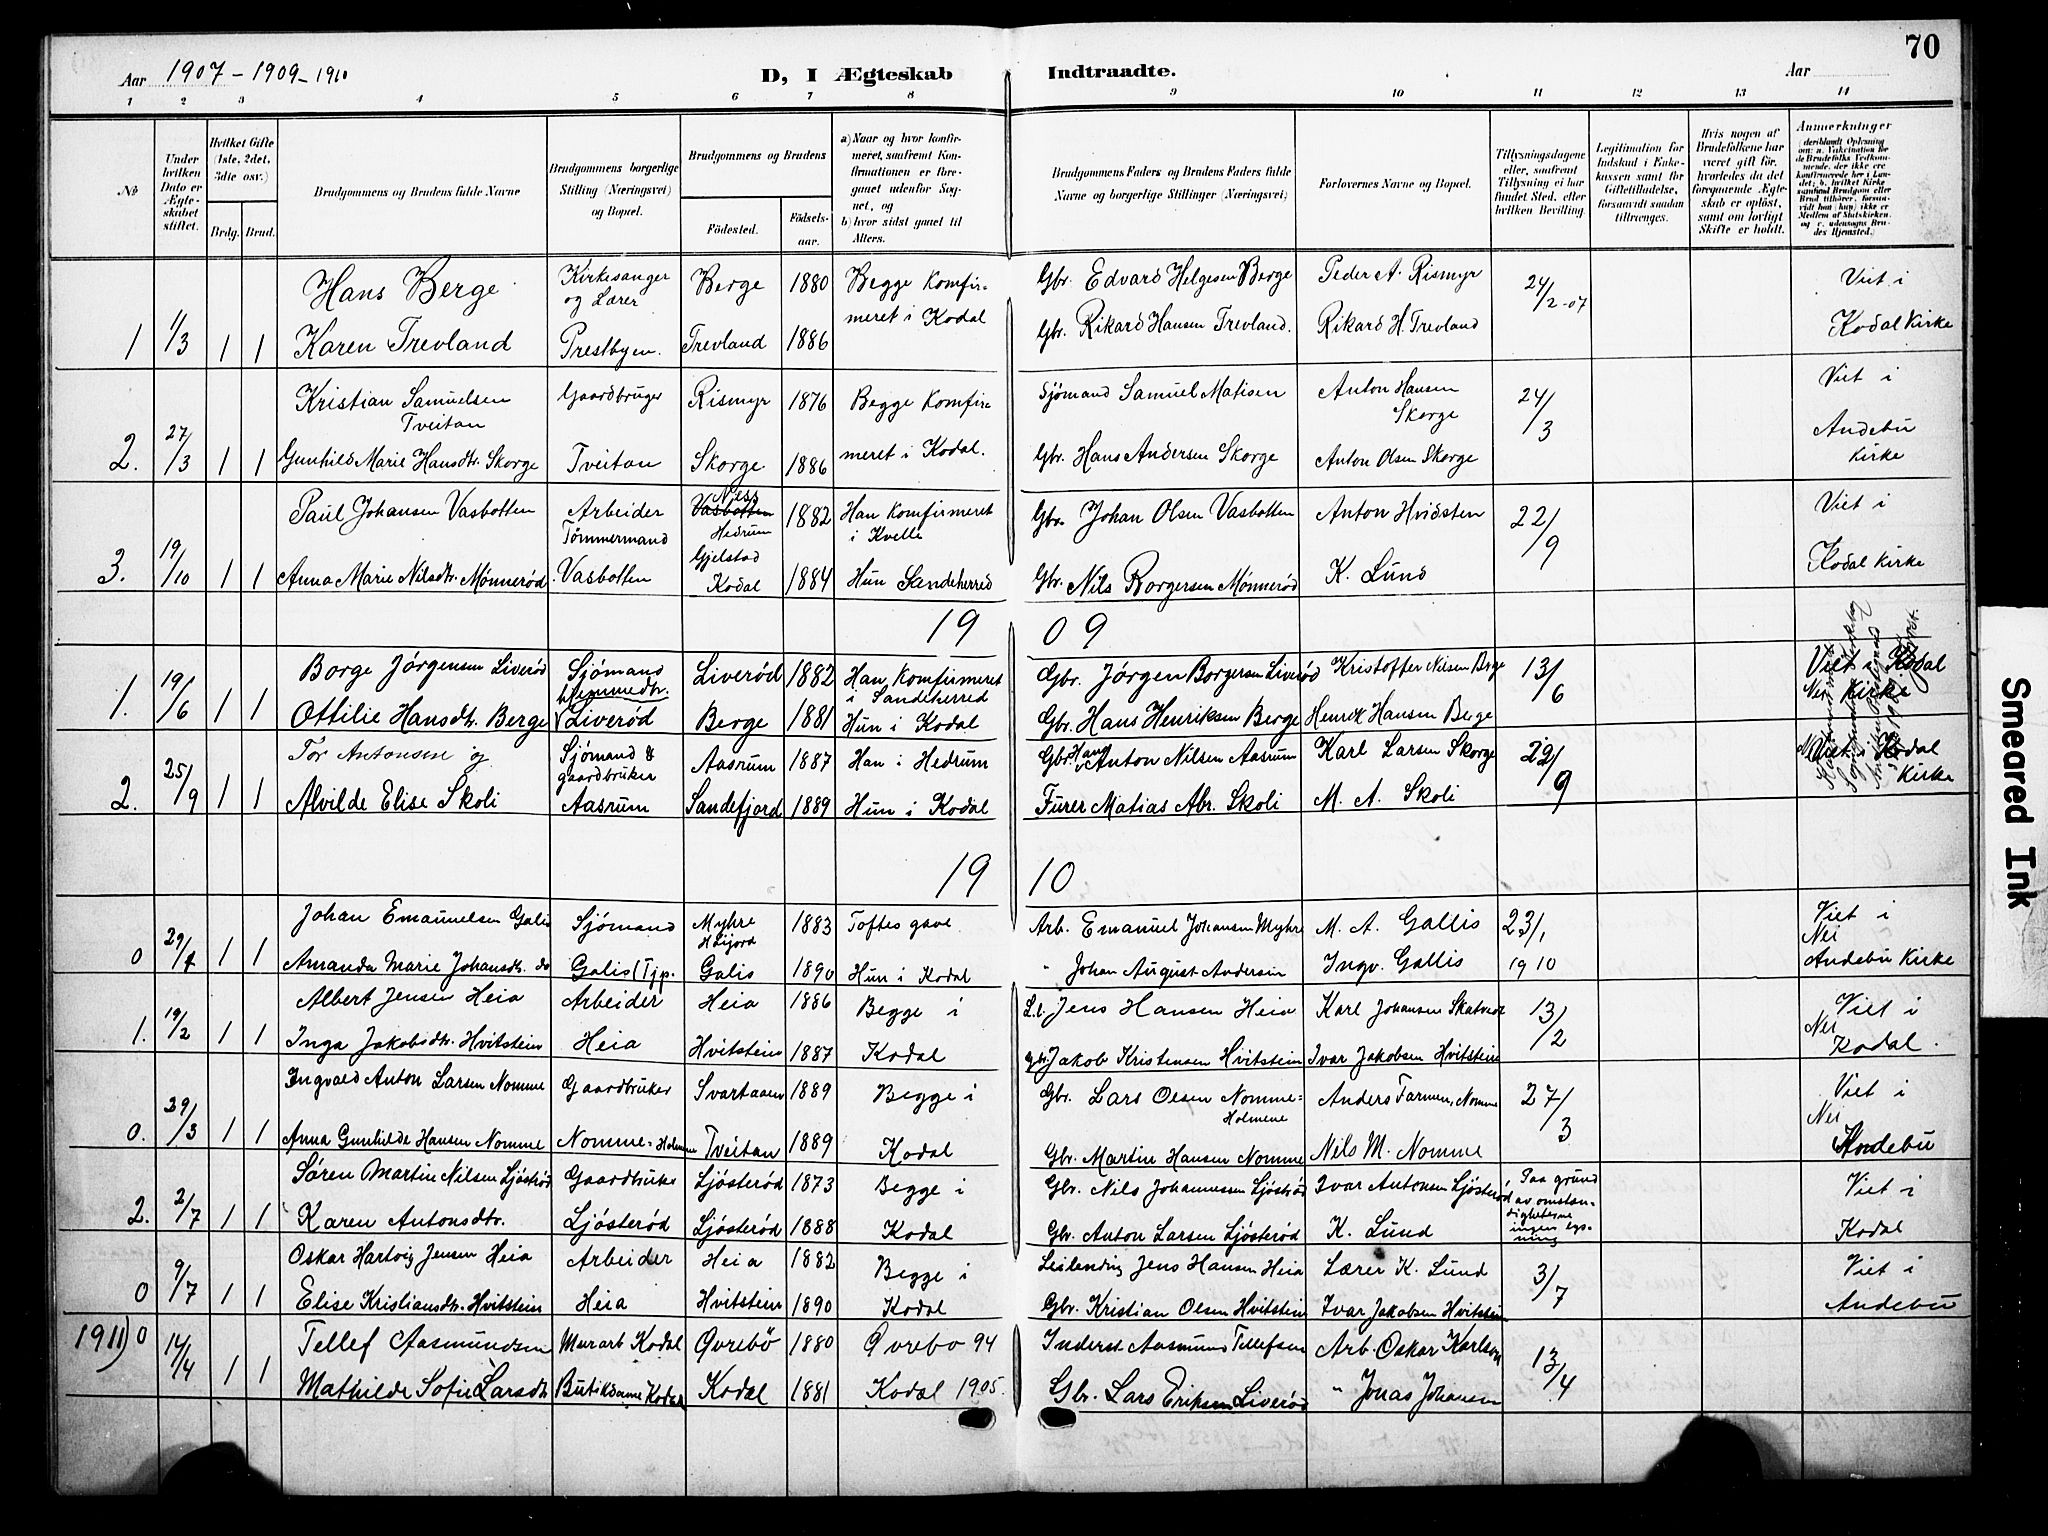 70
Aar 1907 - 1909 - 1910
D, I Ægteskab Indtraadte.
Aar
1 2 3 4 5 6 7 8 9 10 11 12 13 14
No
Under hvilken Dato er Ægteskabet stiftet.
Hvilket Gifte (1ste, 2det, 3die osv.)
Brdg. Brud.
Brudgommens og Brudens fulde Navne
Brudgommens borgerlige Stilling (Næringsvei) og Bopæl.
Brudgommens og Brudens
Födested. Födselsaar.
a) Naar og hvor konfirmeret, saafremt Konfirmationen er foregaaet udenfor Sognet, og
b) hvor sidst gaaet til Alters.
Brudgommens Faders og Brudens Faders fulde Navne og borgerlige Stillinger (Næringsvei)
Forlovernes Navne og Bopæl.
Tillysningsdagene eller, saafremt Tillysning ei har fundet Sted, efter hvilken Bevilling.
Legitimation for Indskud i Enkekassen samt for Giftetilladelse, forsaavidt saadan tiltrænges.
Hvis nogen af Brudefolkene har været gift för, hvorledes da det foregaaende Ægteskab er oplöst, samt om lovligt Skifte er holdt.
Anmerkninger
(deriblandt Oplysning om: a. Vakcination for de Brudefolks Vedkommende, der ikke ere konfirmerede her i Landet; b. hvilket Kirkesamfund Brudgom eller Brud tilhörer, forsaavidt han (hun) ikke er Medlem af Statskirken, og c. udensogns Brudes Hjemsted.)
Hans Berge Kirkesanger og Lærer Berge 1880 Begge Komfirmeret i Kodal Gbr. Edvard Helgesen Berge Peder A. Rismyr 24/2-07 Viet i
1 1/3 1 1 Karen Trevland Prestbyen. Trevland 1886 Gbr. Rikard Hansen Trevland. Rikard H. Trevland Kodal Kirke
Kristian Samuelsen Tveitan Gaardbruger Rismyr 1876 Begge Komfir Sjömand Samuel Matisen Anton Hansen Skorge 24/3 Viet i
2. 27/3 1 1 Gunhild Marie Hansdtr. Skorge Tveitan Skorge 1886 meret i Kodal. Gbr. Hans Andersen Skorge Anton Olsen Skorge Andebu Kirke
Paul Johansen Vasbotten Arbeider Tömmermand Vasbotten Ness Hedrum 1882 Han Komfirmeret i Kvelle Gbr. Johan Olsen Vasbotten Anton Hvidsten 22/9 Viet i
3. 19/10 1 1 Anna Marie Nilsdtr. Mönnerød. Vasbotten Gjelstad Kodal 1884 Hun Sandeherred Gbr. Nils Borgersen Mönnerød K. Lund Kodal Kirke
1909
Borge Jörgensen Liverød Sjömand Liverød 1882 Han Komfirmeret i Sandeherred Gbr. Jörgen Borgersen Liverød Kristoffer Nilsen Berge 13/6 Viet i Kodal
1. 19/6 1 1 Ottilie Hansdtr. Berge Hjemmedtr. Liverød Berge 1881 Hun i Kodal Gbr. Hans Henriksen Berge Henrik Hansen Berge Nei Kirke
Tor Antonsen og Sjömand & gaardbruker Aasrum 1887 Han i Hedrum Gbr. Hans Anton Nilsen Aasrum Karl Larsen Skorge 22/9 Viet i Kodal
2. 25/9 1 1 Alvilde Elise Skoli Aasrum Sandefjord 1889 Hun i Kodal Fürer Matias Abr. Skoli M. A. Skoli Kirke
1910
Johan Emanuelsen Galis Sjömand Myhre 1883 Toftes gave Arb. Emanuel Johansen Myhre M. A. Gallis 23/1 Viet i Nei
0 29/ 1 1 Amanda Marie Johansdtr. do Galis (Tjp. Galis 1890 Hun i Kodal " Johan August Andersen Ingv. Gallis 1910 Andebu Kirke
Albert Jensen Heia Arbeider Heia 1886 Begge i L.l. Jens Hansen Heia Karl Johansen Skatvedt 13/2 Viet i Nei
1. 19/2 1 1 Inga Jakobsdtr. Hvitstein Heia Hvitstein 1887 Kodal Gbr. Jakob Kristensen Hvitstein Ivar Jakobsen Hvitstein Kodal.
Ingvald Anton Larsen Nomme Gaardbruker Svartaaen 1889 Begge i Gbr. Lars Olsen Nomme-Holmene Anders Farmen, Nomme 27/3 Viet i Nei
0. 29/3 1 1 Anna Gunhilde Hansen Nomme Nomme-Holmene Tveitan 1889 Kodal Gbr. Martin Hansen Nomme Nils M. Nomme Andebu
Sören Martin Nilsen Ljösterød Gaardbruker Ljösterød 1873 Begge i Gbr. Nils Johannessen Ljösterød Ivar Antonsen Ljösterød Paa grund av omstændigheterne ingen lysning Viet i
2. 2/7 1 1 Karen Antonsdtr. Ljösterød Ljösterød 1888 Kodal Gbr. Anton Larsen Ljösterød K. Lund Kodal
Oskar Hartvig Jensen Heia Arbeider Heia 1882 Begge i Leilending Jens Hansen Heia Lærer K. Lund 3/7 Viet i
0 9/7 1 1 Elise Kristiansdtr. Hvitstein Heia Hvitstein 1890 Kodal Gbr. Kristian Olsen Hvitstein Ivar Jakobsen Hvitstein Andebu
1911) 0 14/4 Tellef Aasmundsen Murarb Kodal Øvrebö 1880 Øvrebo 94 Inderst. Aasmund Tellefsen Arb. Oskar Karlsen 13/4
1 1 Mathilde Sofie Larsdtr Butikdame Kodal Kodal 1881 Kodal 1905. Gbr. Lars Eriksen Liverød " Jonas Johansen
Smeared Ink